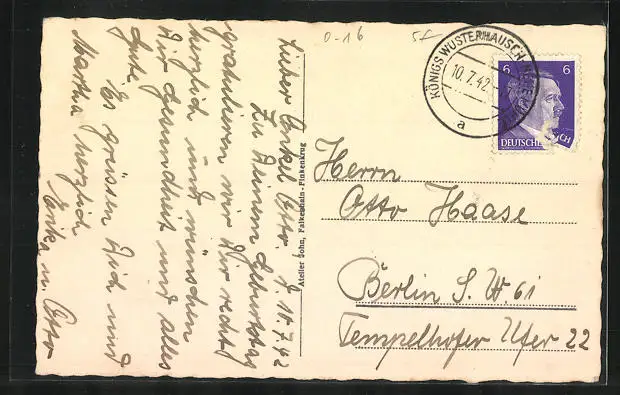 0-16
5f
KÖNIGS WUSTERHAUSEN
10.7.42
a
6 6
DEUTSCHES REICH
Herrn
Otto Haase
Berlin S.W. 61
Tempelhofer Ufer 22
Atelier Sohn, Falkenhain-Finkenkrug
7.42
Lieber Onkel Otto.
Zu Deinem Geburtstag
gratulieren wir Dir recht
herzlich und wünschen
Dir Gesundheit und alles
Gute.
Es grüssen Dich und
Martha herzlich
Erika u.